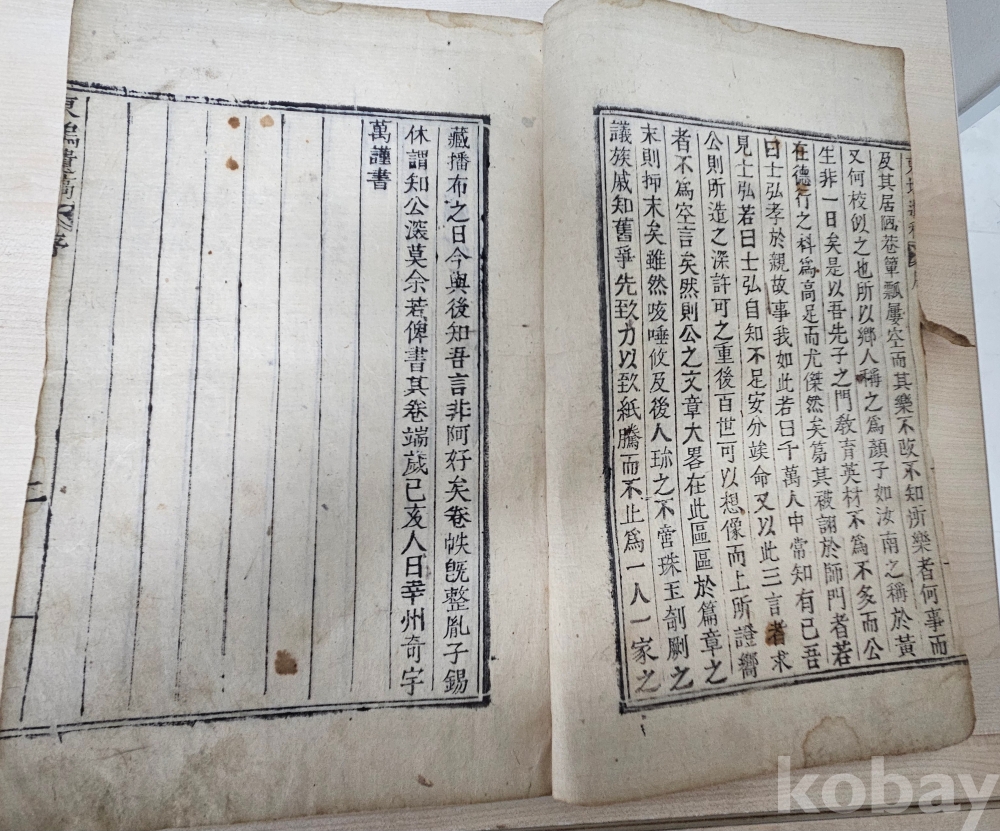 及其居陋巷簞瓢屢空而其樂不改不知所樂者何事而
又何校似之也所以鄕人稱之爲顔子如汝南之稱於黃
生非一日矣是以吾先子之門敎育英材不爲不多而公
在德行之科爲高足而尤傑然矣第其被詡於師門者若
曰士弘孝於親故事我如此若曰千萬人中常知有己吾
見士弘若曰士弘自知不足安分竢命又以此三言者求
公則所造之深許可之重後百世可以想像而上所證嚮
者不爲空言矣然則公之文章大畧在此區區於篇章之
末則抑末矣雖然咳唾攸及後人珎之不啻珠玉剞劂之
議族戚知舊爭先致力以致紙騰而不止爲一人一家之
藏播布之日今與後知吾言非阿好矣卷帙旣整胤子錫
休謂知公深莫余若俾書其卷端歲己亥人日幸州奇宇
萬謹書
遺稿 序
二
kobay